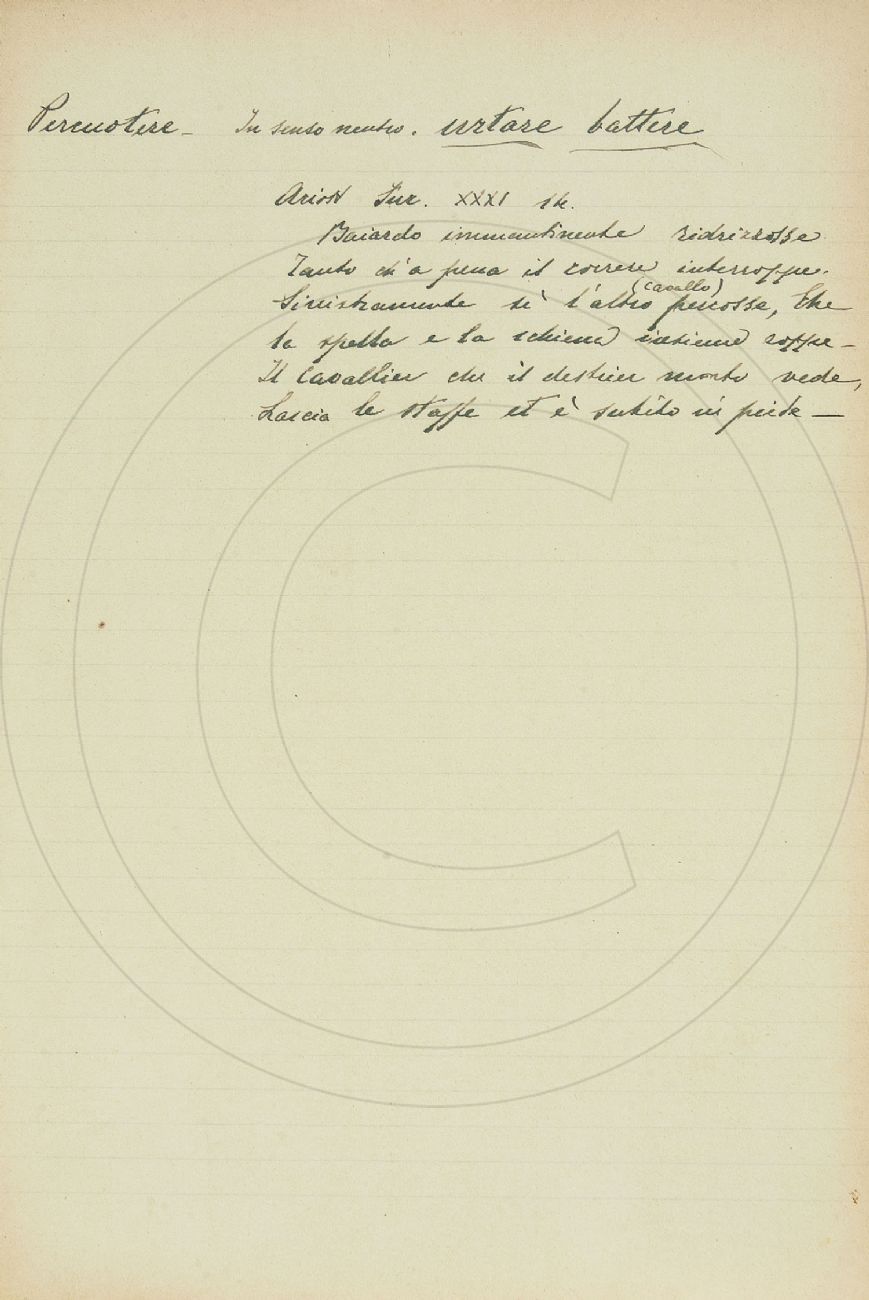 Percuotere - In senso neutro. urtare battere
Ariost Fur. XXXI 16.
Baiardo immantinente ridrizzosse
Tanto ch'a pena il correre interroppe.
Sinistramente sì l'altro (cavallo) percosse, Che
la spalla e la schiena insieme roppe -
Il Cavallier che il destrier morto vede,
Lascia le staffe et è subito in piede —